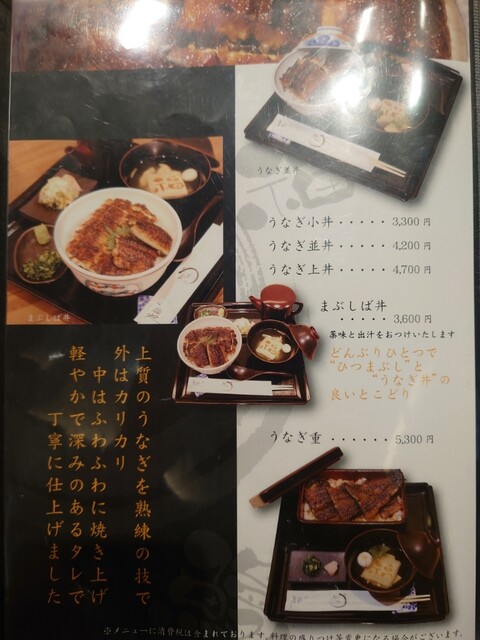 うなぎ並丼
うなぎ小丼・・・・・3,300円
うなぎ並丼・・・・・4,200円
うなぎ上丼・・・・・4,700円
まぶしば丼
まぶしば丼
・・・・・3,600円
薬味と出汁をおつけいたします
どんぶりひとつで
“ひつまぶし”と
“うなぎ丼”の
良いとこどり
うなぎ重・・・・・・5,300円
上質のうなぎを熟練の技で
外はカリカリ
中はふわふわに焼き上げ
軽やかで深みのあるタレで
丁寧に仕上げました
※メニューに消費税は含まれております。料理の盛りつけ等変更になる場合がございます。